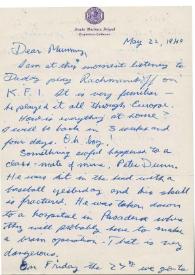 May 22, 1940
Dear Mummy,
I am at this moment listening to
play on
K.F.I. It is very familiar -
he played it all through Europe.
How is everything at home?
I will be back in 3 weeks and
four days. Oh boy.
Something happens to a
class-mate of mine, Peter Dunn.
He was hit in the head with a
baseball yesterday and his skull
is fractured. He was taken down
to a hospital in Pasadena where
they will probably have to make
a brain operation. That is very
dangerous.
On Friday the 25th we go to